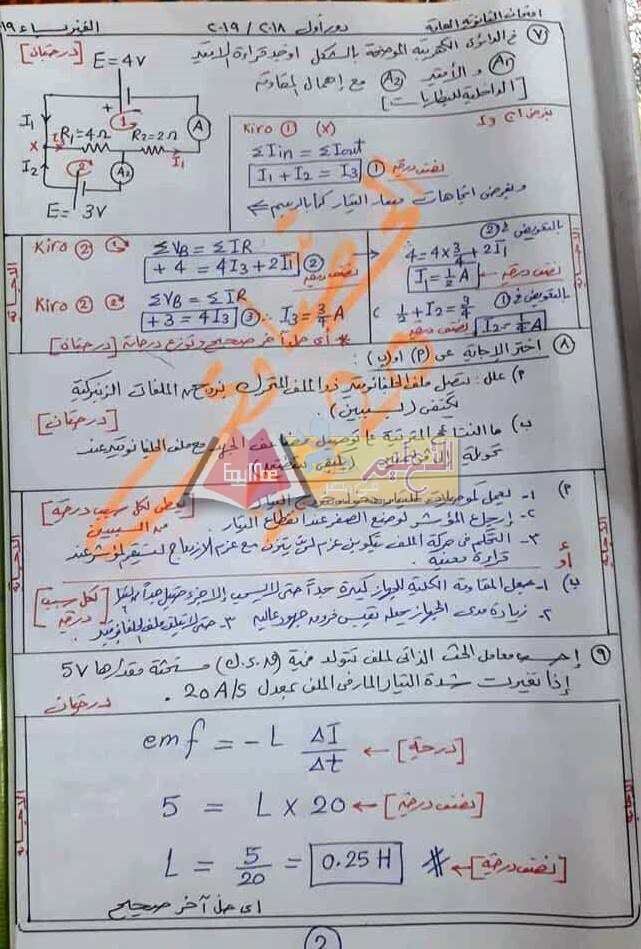 امتحانات الثانوية العامة دور أول ٢٠١٨ / ٢٠١٩ الفيزياء
٧ في الدائرة الكهربية الموضحة بالشكل اوجد قراءة الاميتر
A₁ و الأميتر A₂ مع إهمال المقاومة
الداخلية للبطاريات] [درجتان]
E = 4V
+
I₁
R₁ = 4Ω
R₂ = 2Ω
A
X
I₂
A₂
I₁
E = 3V
Kiro ① (x)
ΣIin = ΣIout
I₁ + I₂ = I₃ ① نصف درجة
وبفرض اتجاهات مسار التيار كما بالرسم
Kiro ② ΣVB = ΣIR
+ 4 = 4I₃ + 2I₁ ② نصف درجة
Kiro ② ΣVB = ΣIR
+ 3 = 4I₃ ③ ∴ I₃ = 3/4 A
بالتعويض في ②
4 = 4 × 3/4 + 2I₁
I₁ = 1/2 A نصف درجة
بالتعويض في ①
1/2 + I₂ = 3/4
I₂ = 1/4 A نصف درجة
* أي حل آخر صحيح وتوزع درجاته [درجتان]
٨ اختر الإجابة عن (٢) أو (ب) :
٢) علل : يتصل ملف الجلفانومتر ذو الملف المتحرك بزوج من الملفات الزنبركية
يكتفى (بسببين) . [درجتان]
ب) ما النتائج المترتبة على توصيل مضاعف الجهد مع ملف الجلفانومتر عند
الإجابة
٢) ١- تعمل كموصلات
[يعطى لكل سبب درجة]
من السببين
٢- إرجاع المؤشر لوضع الصفر عند انقطاع التيار .
٣- التحكم في حركة الملف بتكوين عزم لى يتزن مع عزم الازدواج ليستقر المؤشر عند
قراءة معينة .
أو
ب) ١- يجعل المقاومة الكلية للجهاز كبيرة جداً حتى لا يسحب إلا جزء ضئيل جداً
٢- زيادة مدى الجهاز يجعله يقيس فروق جهود عالية ٣- حتى لا يتلف ملف الجلفانومتر
[لكل سبب
درجة]
٩ احسب معامل الحث الذاتى لملف تتولد فية (ق.د.ك) مستحثة مقدارها 5V
إذا تغيرت شدة التيار المار فى الملف بمعدل 20 A/S .
درجتان
emf = - L ΔI/Δt ← [درجة]
5 = L × 20 ← [نصف درجة]
L = 5/20 = 0.25 H # ← [نصف درجة]
اى حل آخر صحيح
2